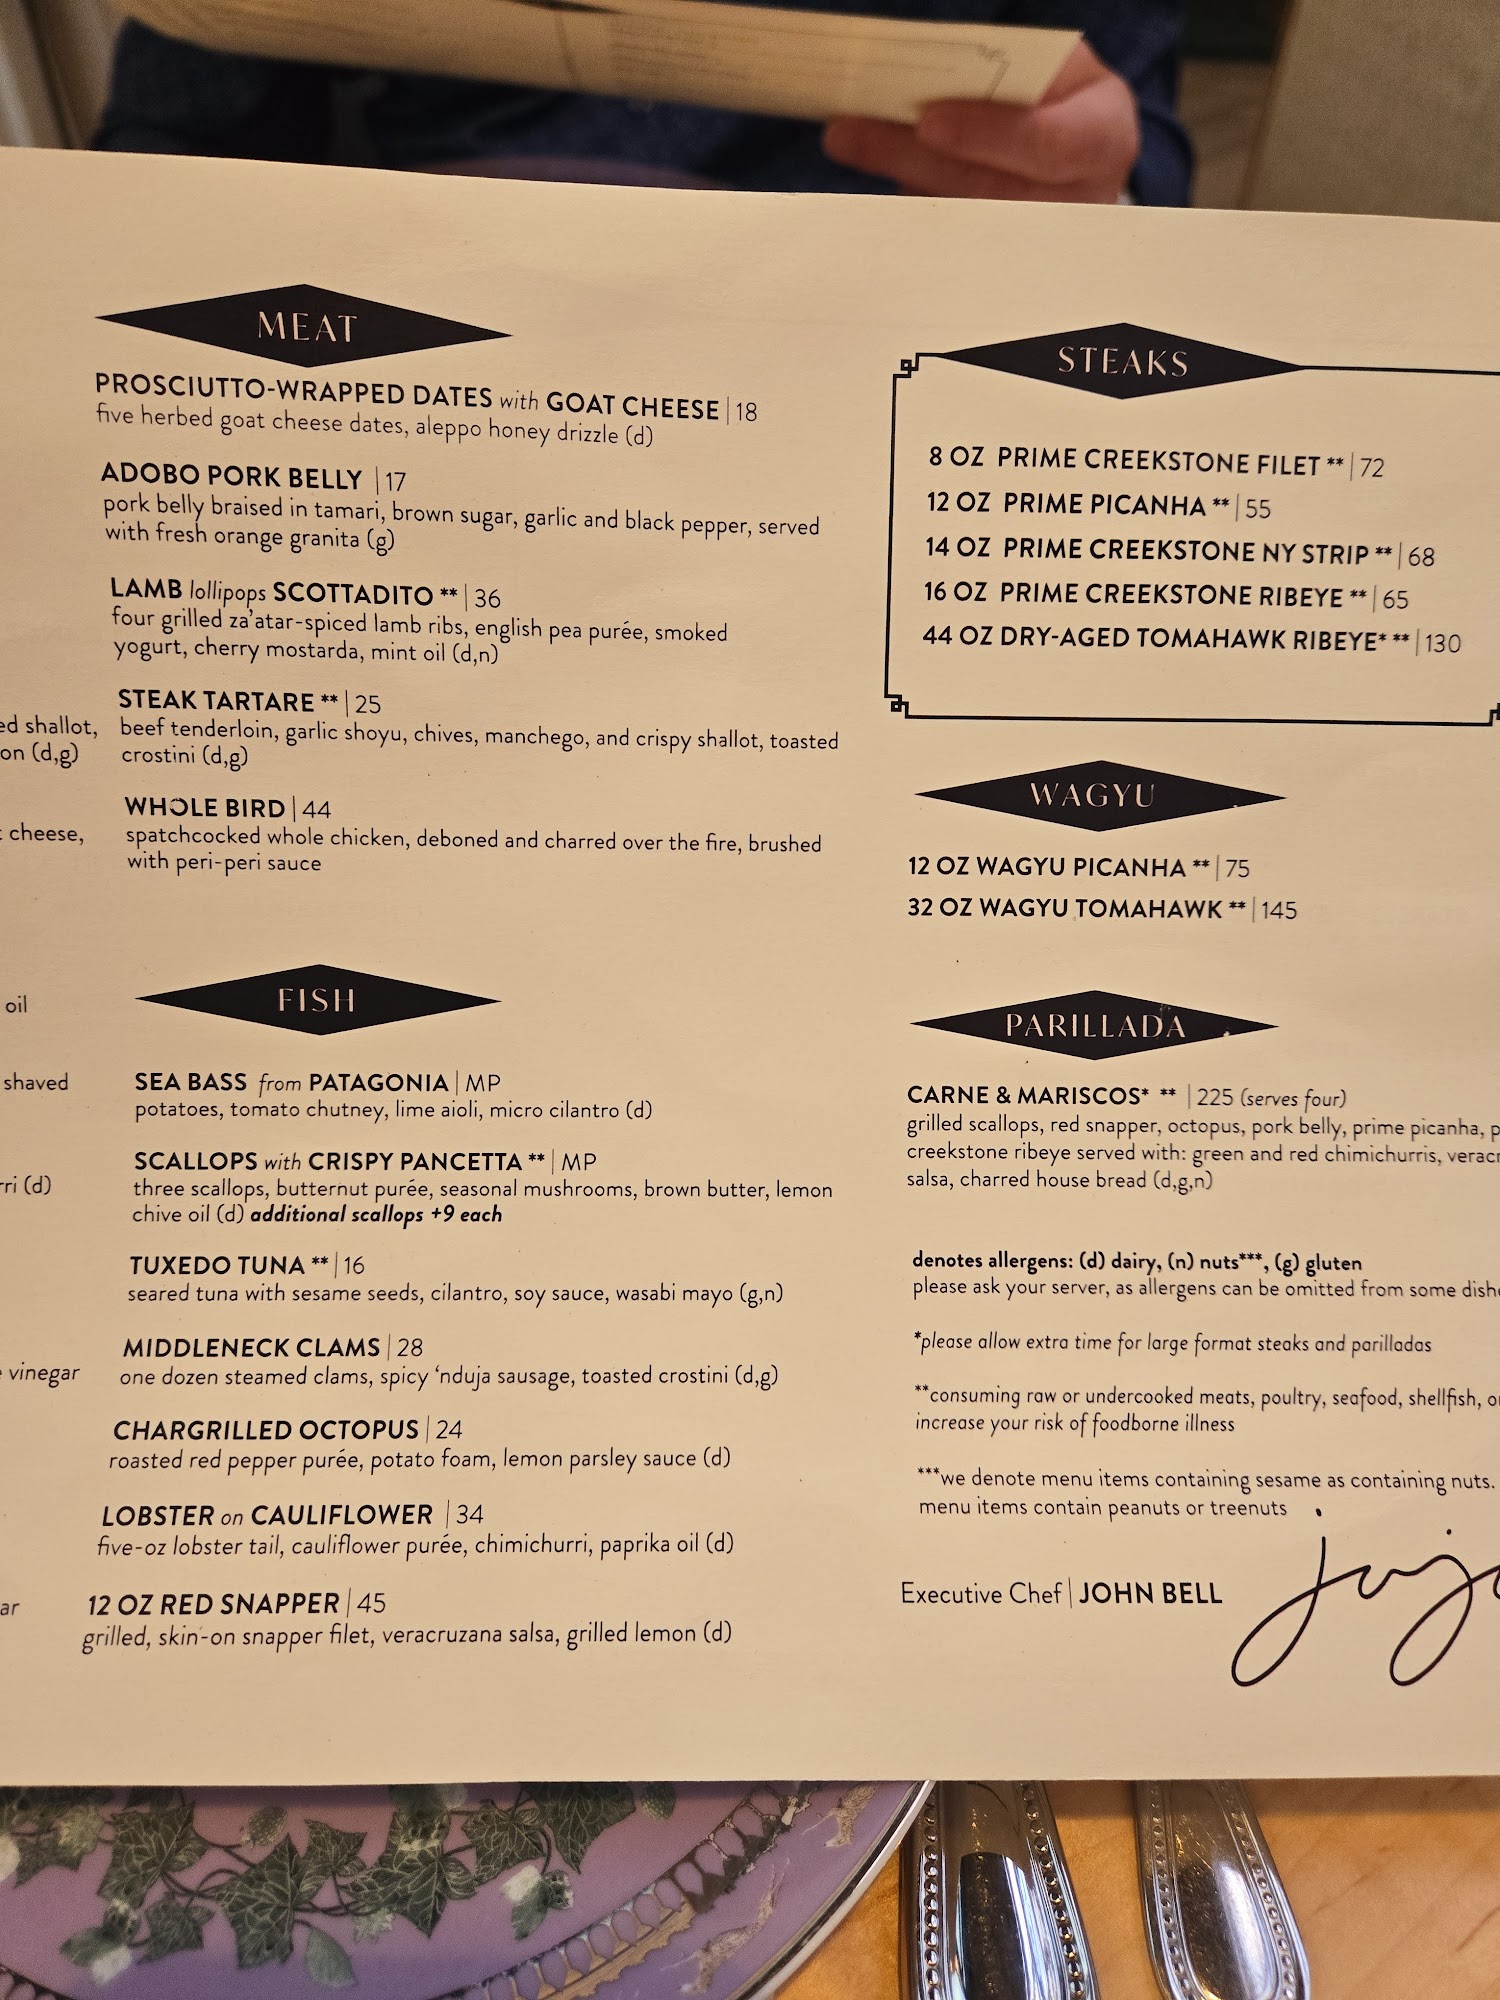 MEAT
PROSCIUTTO-WRAPPED DATES with GOAT CHEESE | 18
five herbed goat cheese dates, aleppo honey drizzle (d)
ADOBO PORK BELLY | 17
pork belly braised in tamari, brown sugar, garlic and black pepper, served
with fresh orange granita (g)
LAMB lollipops SCOTTADITO ** | 36
four grilled za'atar-spiced lamb ribs, english pea purée, smoked
yogurt, cherry mostarda, mint oil (d,n)
STEAK TARTARE ** | 25
beef tenderloin, garlic shoyu, chives, manchego, and crispy shallot, toasted
crostini (d,g)
WHOLE BIRD | 44
spatchcocked whole chicken, deboned and charred over the fire, brushed
with peri-peri sauce
FISH
SEA BASS from PATAGONIA | MP
potatoes, tomato chutney, lime aioli, micro cilantro (d)
SCALLOPS with CRISPY PANCETTA ** | MP
three scallops, butternut purée, seasonal mushrooms, brown butter, lemon
chive oil (d) additional scallops +9 each
TUXEDO TUNA ** | 16
seared tuna with sesame seeds, cilantro, soy sauce, wasabi mayo (g,n)
MIDDLENECK CLAMS | 28
one dozen steamed clams, spicy 'nduja sausage, toasted crostini (d,g)
CHARGRILLED OCTOPUS | 24
roasted red pepper purée, potato foam, lemon parsley sauce (d)
LOBSTER on CAULIFLOWER | 34
five-oz lobster tail, cauliflower purée, chimichurri, paprika oil (d)
12 OZ RED SNAPPER | 45
grilled, skin-on snapper filet, veracruzana salsa, grilled lemon (d)
shallot,
(d,g)
cheese,
oil
shaved
(d)
vinegar
STEAKS
8 OZ PRIME CREEKSTONE FILET ** | 72
12 OZ PRIME PICANHA ** | 55
14 OZ PRIME CREEKSTONE NY STRIP ** | 68
16 OZ PRIME CREEKSTONE RIBEYE ** | 65
44 OZ DRY-AGED TOMAHAWK RIBEYE* ** | 130
WAGYU
12 OZ WAGYU PICANHA ** | 75
32 OZ WAGYU TOMAHAWK ** | 145
PARILLADA
CARNE & MARISCOS* ** | 225 (serves four)
grilled scallops, red snapper, octopus, pork belly, prime picanha,
creekstone ribeye served with: green and red chimichurris,
salsa, charred house bread (d,g,n)
denotes allergens: (d) dairy, (n) nuts***, (g) gluten
please ask your server, as allergens can be omitted from some
*please allow extra time for large format steaks and parilladas
**consuming raw or undercooked meats, poultry, seafood, shellfish,
increase your risk of foodborne illness
***we denote menu items containing sesame as containing nuts.
menu items contain peanuts or treenuts
Executive Chef | JOHN BELL